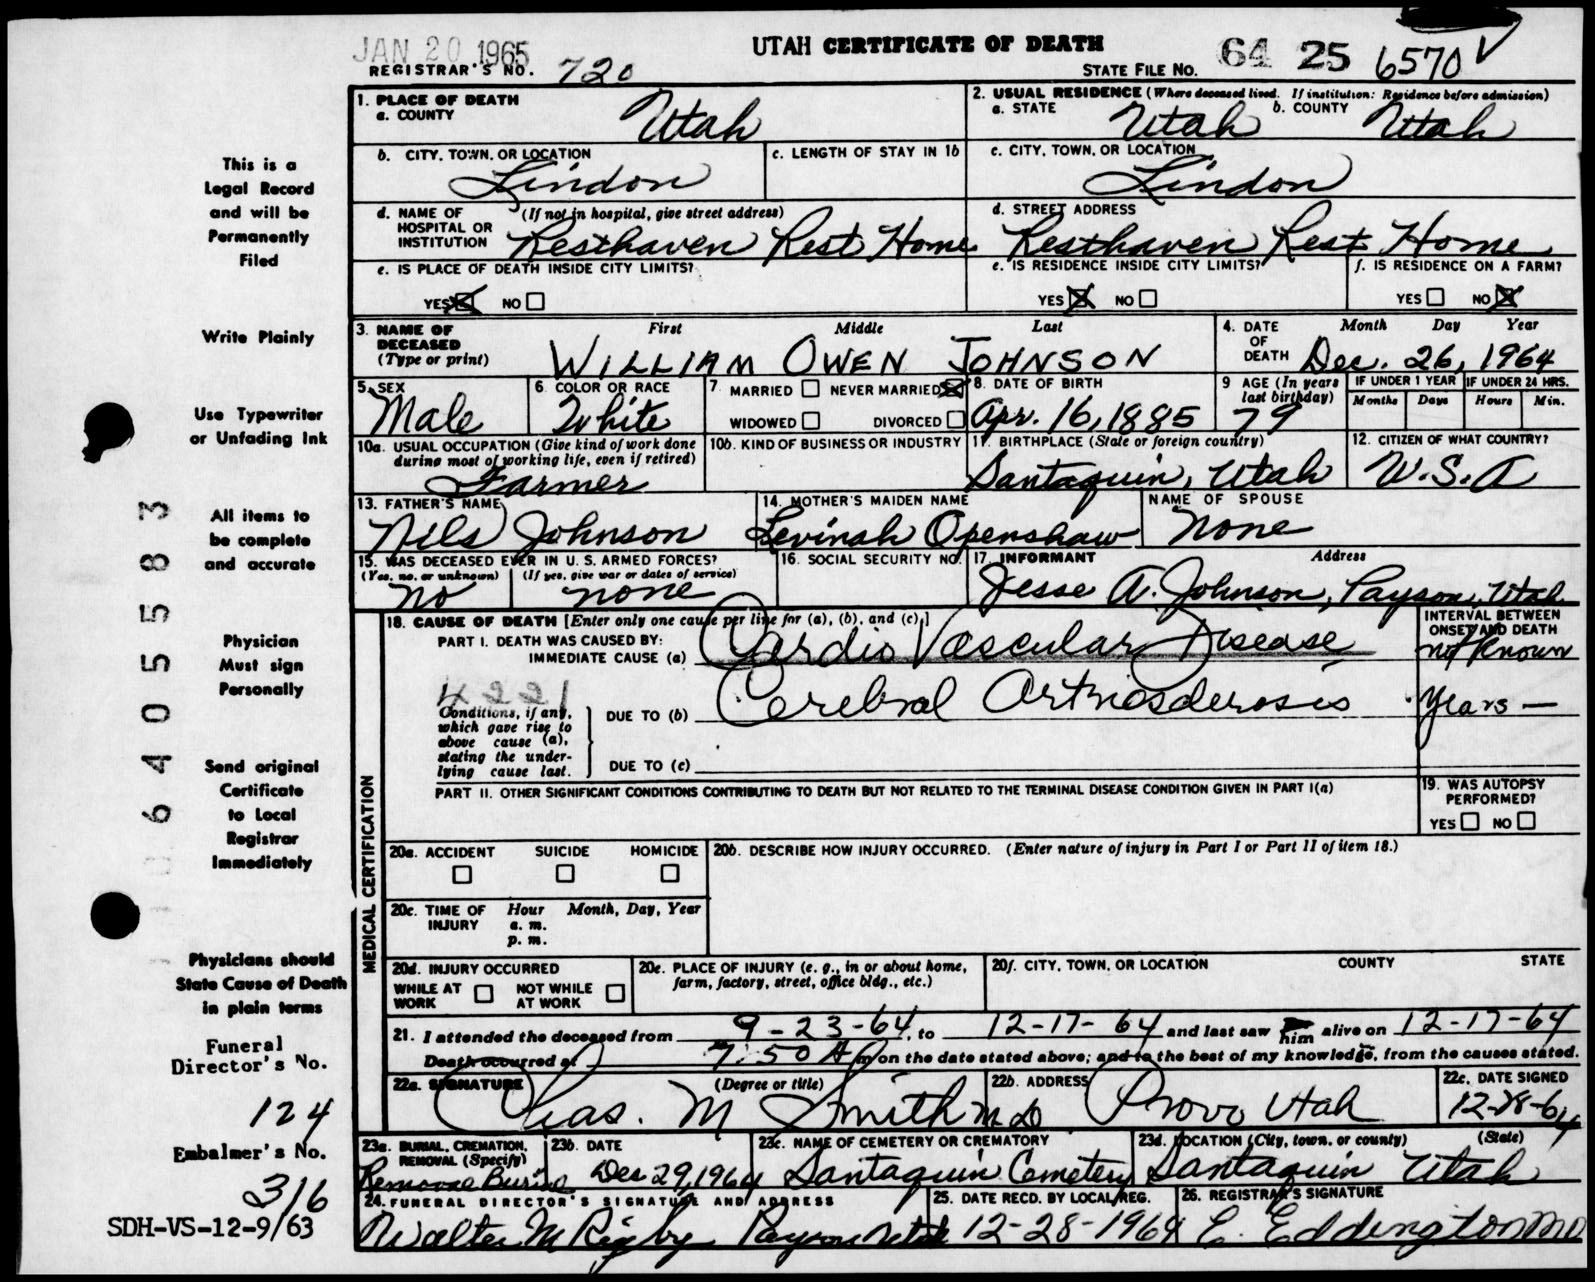 JAN 20 1965
UTAH CERTIFICATE OF DEATH
REGISTRAR'S NO. 720
STATE FILE NO. 64 25 6570
This is a
Legal Record
and will be
Permanently
Filed
Write Plainly
Use Typewriter
or Unfading Ink
All items to
be complete
and accurate
Physician
Must sign
Personally
Send original
Certificate
to Local
Registrar
Immediately
Physicians should
State Cause of Death
in plain terms
Funeral
Director's No.
124
Embalmer's No.
316
SDH-VS-12-9/63
640555083
1. PLACE OF DEATH
a. COUNTY Utah
2. USUAL RESIDENCE (Where deceased lived. If institution: Residence before admission)
a. STATE Utah b. COUNTY Utah
b. CITY, TOWN, OR LOCATION Lindon
c. LENGTH OF STAY IN 1b
c. CITY, TOWN, OR LOCATION Lindon
d. NAME OF HOSPITAL OR INSTITUTION (If not in hospital, give street address) Resthaven Rest Home
d. STREET ADDRESS Resthaven Rest Home
e. IS PLACE OF DEATH INSIDE CITY LIMITS?
YES NO
e. IS RESIDENCE INSIDE CITY LIMITS?
YES NO
f. IS RESIDENCE ON A FARM?
YES NO
3. NAME OF DECEASED (Type or print)
First Middle Last
WILLIAM OWEN JOHNSON
4. DATE OF DEATH Month Day Year
Dec. 26, 1964
5. SEX Male
6. COLOR OR RACE White
7. MARRIED NEVER MARRIED
WIDOWED DIVORCED
8. DATE OF BIRTH Apr. 16, 1885
9 AGE (In years last birthday) 79
IF UNDER 1 YEAR Months Days
IF UNDER 24 HRS. Hours Min.
10a. USUAL OCCUPATION (Give kind of work done during most of working life, even if retired) Farmer
10b. KIND OF BUSINESS OR INDUSTRY
11. BIRTHPLACE (State or foreign country) Santaquin, Utah
12. CITIZEN OF WHAT COUNTRY? U.S.A
13. FATHER'S NAME Nils Johnson
14. MOTHER'S MAIDEN NAME Levinah Openshaw
NAME OF SPOUSE none
15. WAS DECEASED EVER IN U.S. ARMED FORCES?
(Yes, no, or unknown) no
(If yes, give war or dates of service) none
16. SOCIAL SECURITY NO.
17. INFORMANT Address
Jesse A. Johnson, Payson, Utah
MEDICAL CERTIFICATION
18. CAUSE OF DEATH [Enter only one cause per line for (a), (b), and (c).]
INTERVAL BETWEEN ONSET AND DEATH
PART I. DEATH WAS CAUSED BY:
IMMEDIATE CAUSE (a) Cardio Vascular Disease not known
4221
Conditions, if any, which gave rise to above cause (a), stating the underlying cause last.
DUE TO (b) Cerebral Arteriosclerosis years —
DUE TO (c)
PART II. OTHER SIGNIFICANT CONDITIONS CONTRIBUTING TO DEATH BUT NOT RELATED TO THE TERMINAL DISEASE CONDITION GIVEN IN PART I(a)
19. WAS AUTOPSY PERFORMED?
YES NO
20a. ACCIDENT SUICIDE HOMICIDE
20b. DESCRIBE HOW INJURY OCCURRED. (Enter nature of injury in Part I or Part II of item 18.)
20c. TIME OF INJURY Hour a. m. p. m. Month, Day, Year
20d. INJURY OCCURRED
WHILE AT WORK NOT WHILE AT WORK
20e. PLACE OF INJURY (e. g., in or about home, farm, factory, street, office bldg., etc.)
20f. CITY, TOWN, OR LOCATION COUNTY STATE
21. I attended the deceased from 9-23-64, to 12-17-64 and last saw him alive on 12-17-64
Death occurred at 7:50 A m on the date stated above; and to the best of my knowledge, from the causes stated.
22a. SIGNATURE (Degree or title) Chas. M Smith MD
22b. ADDRESS Provo Utah
22c. DATE SIGNED 12-28-64
23a. BURIAL, CREMATION, REMOVAL (Specify) Removal Burial
23b. DATE Dec 29, 1964
23c. NAME OF CEMETERY OR CREMATORY Santaquin Cemetery
23d. LOCATION (City, town, or county) (State) Santaquin Utah
24. FUNERAL DIRECTOR'S SIGNATURE AND ADDRESS
Walter M Rigby Payson Utah
25. DATE RECD. BY LOCAL REG. 12-28-1964
26. REGISTRAR'S SIGNATURE E. Eddington MD